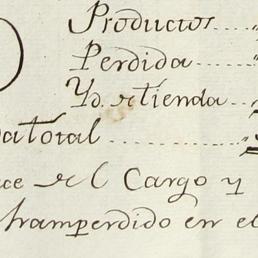 Productos
Perdida
Yd. de tienda
total
ce del Cargo y
han perdido en el